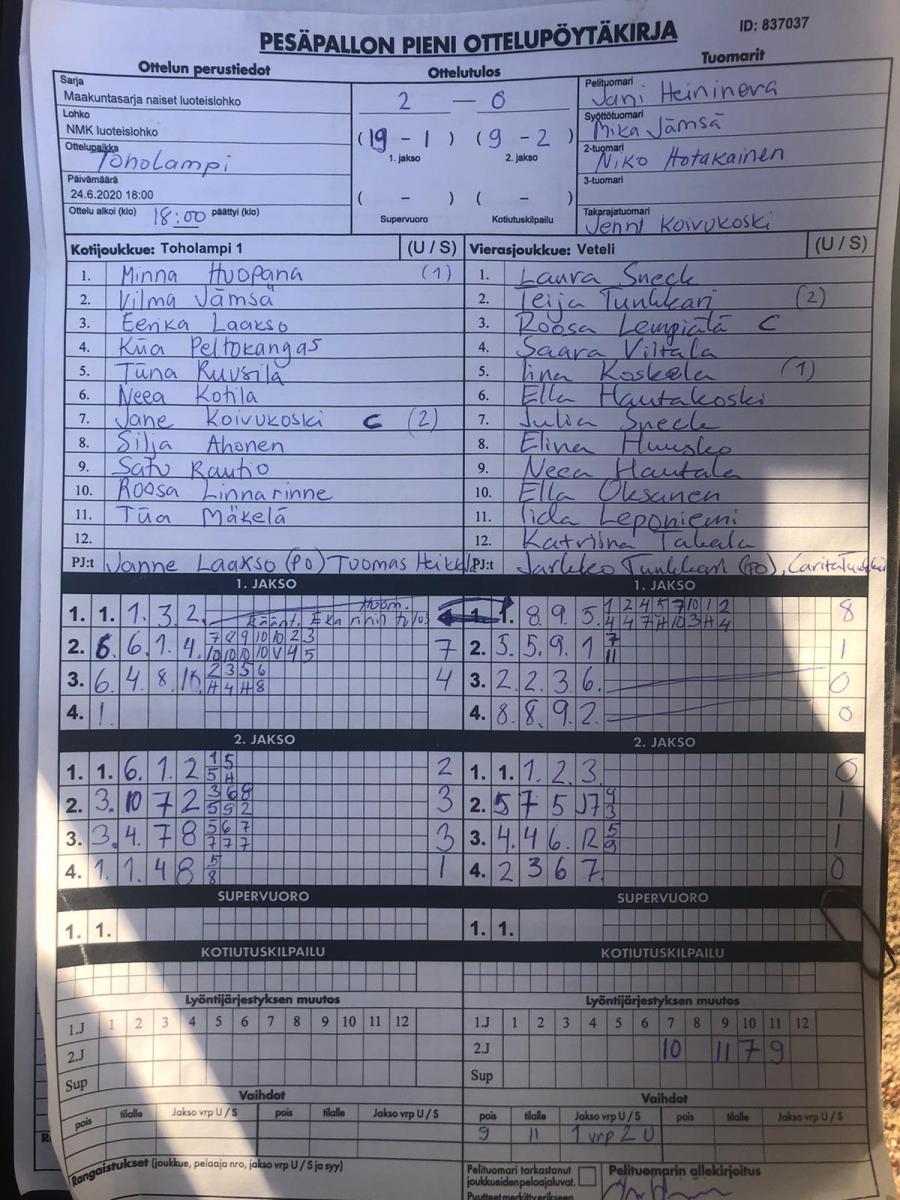 ID: 837037
PESÄPALLON PIENI OTTELUPÖYTÄKIRJA
Ottelun perustiedot
Ottelutulos
Tuomarit
Sarja
Maakuntasarja naiset luoteislohko
Lohko
NMK luoteislohko
Ottelupaikka
Toholampi
Päivämäärä
24.6.2020 18:00
Ottelu alkoi (klo) 18:00 päättyi (klo)
2 — 0
(19 - 1) (9 - 2)
1. jakso 2. jakso
( - ) ( - )
Supervuoro Kotiutuskilpailu
Pelituomari
Jani Heininen
Syöttötuomari
Mika Jämsä
2-tuomari
Niko Hotakainen
3-tuomari
Takarajatuomari
Jenni Koivukoski
Kotijoukkue: Toholampi 1 (U / S)
1. Minna Huopana (1)
2. Vilma Jämsä
3. Eerika Laakso
4. Kiia Peltokangas
5. Tiina Ruusila
6. Neea Kotila
7. Jane Koivukoski C (2)
8. Silja Ahonen
9. Satu Rautio
10. Roosa Linnarinne
11. Tiia Mäkelä
12.
PJ:t Janne Laakso (PO) Tuomas Heikkilä
Vierasjoukkue: Veteli (U / S)
1. Laura Sneck
2. Teija Tunkkari (2)
3. Roosa Lempiälä C
4. Saara Viitala
5. Iina Koskela (1)
6. Ella Hautakoski
7. Julia Sneck
8. Elina Huusko
9. Neea Hautala
10. Ella Oksanen
11. Iida Leponiemi
12. Katriina Takala
PJ:t Jarkko Tunkkari (PO), Carita
1. JAKSO
1. 1. 1. 3. 2. Huom.
Käänt. Eka vihin tulos
2. 6. 6. 1. 4. 7 8 9 10 10 2 3 7
10 10 10 10 V 4 5
3. 6. 4. 8. 2 3 5 6 4
H 4 H 8
4. 1.
1. JAKSO
1. 1. 8. 9. 5. 1 2 4 5 7 10 1 2 8
4 4 7 H 10 3 H 4
2. 5. 5. 9. 1 7 1
11
3. 2. 2. 3 6. 0
4. 8. 8. 9 2. 0
2. JAKSO
1. 1. 6. 1. 2 1 5 2
5 H
2. 3. 10 7 2 3 6 8 3
5 5 2
3. 3. 4. 7 8 5 6 7 3
7 7 7
4. 1. 1. 4 8 5 1
8
2. JAKSO
1. 1. 1. 2. 3. 0
2. 5 7 5 9 1
3
3. 4. 4 6. 5 1
9
4. 2 3 6 7. 0
SUPERVUORO
1. 1.
SUPERVUORO
1. 1.
KOTIUTUSKILPAILU
KOTIUTUSKILPAILU
Lyöntijärjestyksen muutos
1.J 1 2 3 4 5 6 7 8 9 10 11 12
2.J
Sup
Lyöntijärjestyksen muutos
1.J 1 2 3 4 5 6 7 8 9 10 11 12
2.J 10 11 7 9
Sup
Vaihdot
pois tilalle Jakso vrp U / S pois tilalle Jakso vrp U / S
Vaihdot
pois tilalle Jakso vrp U / S pois tilalle Jakso vrp U / S
9 11 1 vrp 2 U
Rangaistukset (joukkue, pelaaja nro, jakso vrp U / S ja syy)
Pelituomari tarkastanut
joukkueiden pelaajaluvat.
Pelituomarin allekirjoitus
Puutteet merkitty erikseen